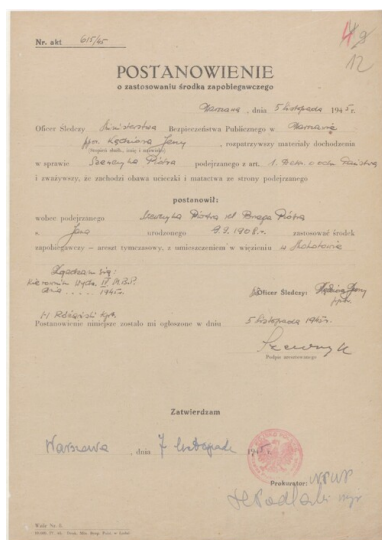 Nr. akt 615/45
12
POSTANOWIENIE
o zastosowaniu środka zapobiegawczego
Warszawa, dnia 5 listopada 1945 r.
Oficer Śledczy Ministerstwa Bezpieczeństwa Publicznego w Warszawie
ppor. Kędziora Jerzy, rozpatrzywszy materiały dochodzenia
w sprawie Szewczyka Piotra podejrzanego z art. 1. Dekr. o ochr. Państwa
i zważywszy, że zachodzi obawa ucieczki i matactwa ze strony podejrzanego
postanowił:
wobec podejrzanego Szewczyka Piotra
s. Jana urodzonego 1908 r. zastosować środek
zapobiegawczy — areszt tymczasowy, z umieszczeniem w więzieniu w Mokotowie
Zgadzam się:
Kierownik Wydz.
dnia 1945 r.
Oficer Śledczy: Kędziora Jerzy
ppor.
Postanowienie niniejsze zostało mi ogłoszone w dniu 5 listopada 1945 r.
Szewczyk
Podpis aresztowanego
Zatwierdzam
Warszawa, dnia 7 listopada 1945 r.
Prokurator: